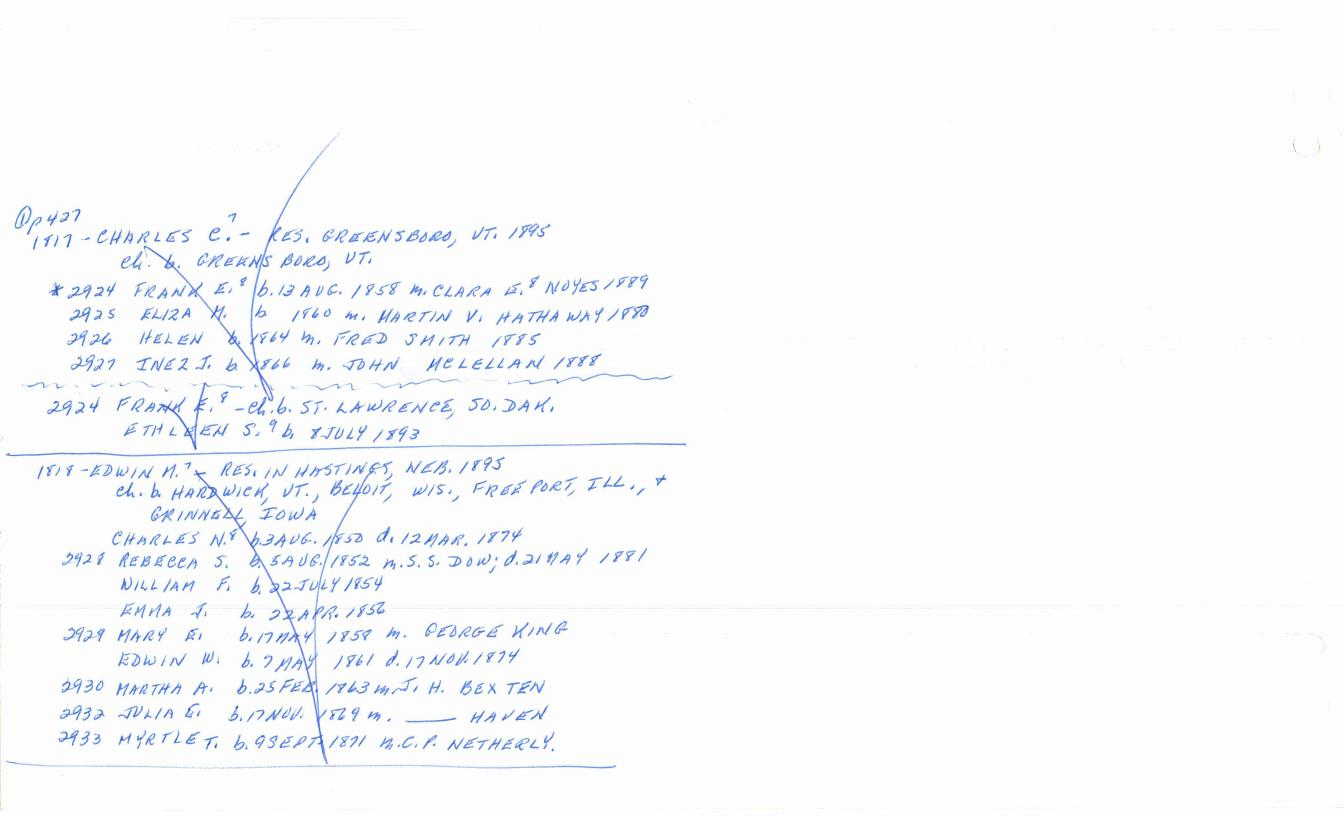 ① p427
1817 - CHARLES C.⁷ - RES. GREENSBORO, VT. 1895
ch. b. GREENSBORO, VT.
*2924 FRANK E.⁸ b. 13 AUG. 1858 m. CLARA E.⁸ NOYES 1889
2925 ELIZA M. b 1860 m. MARTIN V. HATHAWAY 1880
2926 HELEN b. 1864 m. FRED SMITH 1885
2927 INEZ J. b 1866 m. JOHN MCLELLAN 1888
2924 FRANK E.⁸ - ch. b. ST. LAWRENCE, SO. DAK.
ETHLEEN S.⁹ b. 8 JULY 1893
1818 - EDWIN M.⁷ - RES. IN HASTINGS, NEB. 1895
ch. b. HARDWICK, VT., BELOIT, WIS., FREEPORT, ILL., +
GRINNELL, IOWA
CHARLES N.⁸ b. 3 AUG. 1850 d. 12 MAR. 1874
2928 REBECCA S. b. 5 AUG. 1852 m. S. S. DOW; d. 21 MAY 1881
WILLIAM F. b. 22 JULY 1854
EMMA J. b. 22 APR. 1856
2929 MARY E. b. 17 MAY 1858 m. GEORGE KING
EDWIN W. b. 7 MAY 1861 d. 17 NOV. 1874
2930 MARTHA A. b. 25 FEB. 1863 m. J. H. BEXTEN
2932 JULIA E. b. 17 NOV. 1869 m. ____ HAVEN
2933 MYRTLE T. b. 9 SEPT. 1871 m. C. P. NETHERLY.